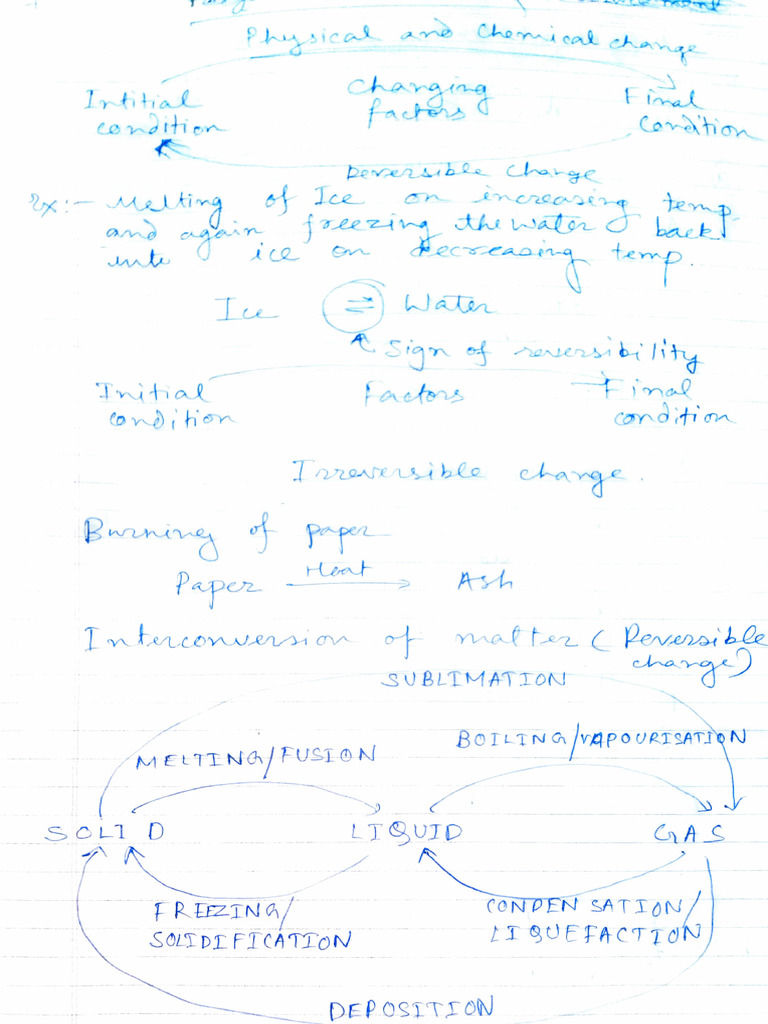 Physical and Chemical change
Intitial Changing Final
condition factors Condition
Reversible Change
Ex:- Melting of Ice on increasing temp
and again freezing the water back
into ice on decreasing temp.
Ice ⇌ Water
Sign of reversibility
Initial Factors Final
condition condition
Irreversible change.
Burning of paper
Heat
Paper → Ash
Interconversion of matter (Reversible
change)
SUBLIMATION
BOILING/VAPOURISATION
MELTING/FUSION
SOLID LIQUID GAS
FREEZING/ CONDENSATION/
SOLIDIFICATION LIQUEFACTION
DEPOSITION